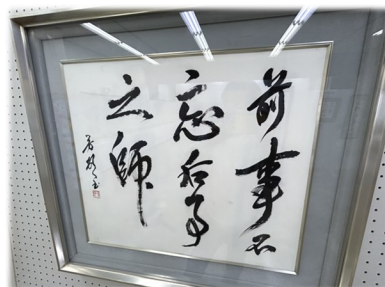 前事不
忘后事
之師